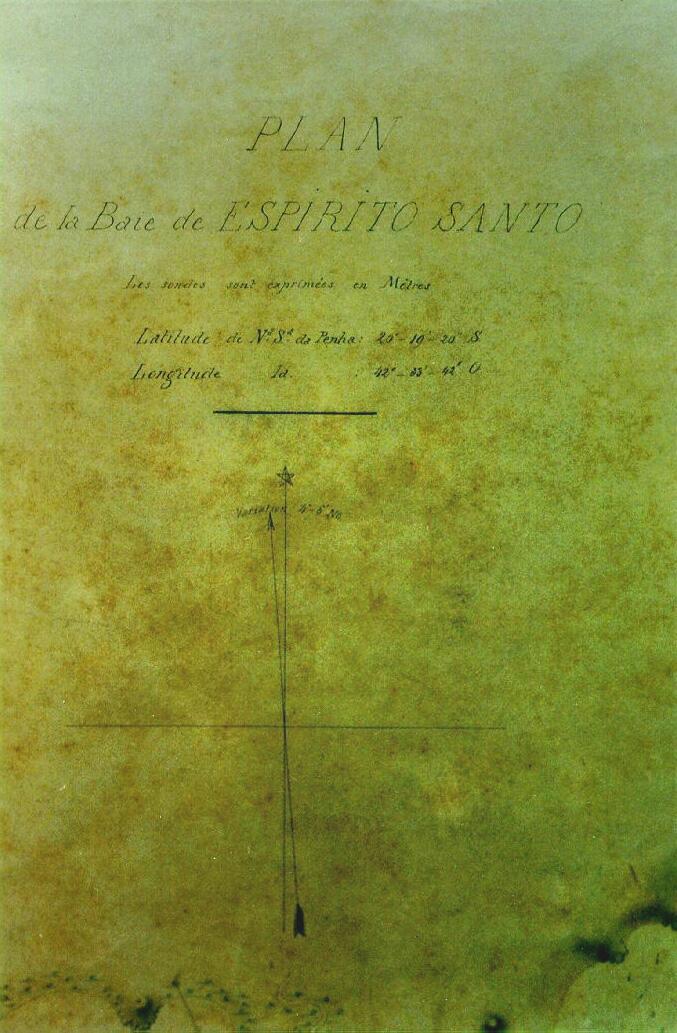 PLAN
de la Baie de ESPIRITO SANTO
Les sondes sont exprimées en Mètres
Latitude de Nª Sª da Penha: 20° - 19' - 20" S
Longitude Id. : 42° - 33' - 42" O
Variation 4° - 5' No